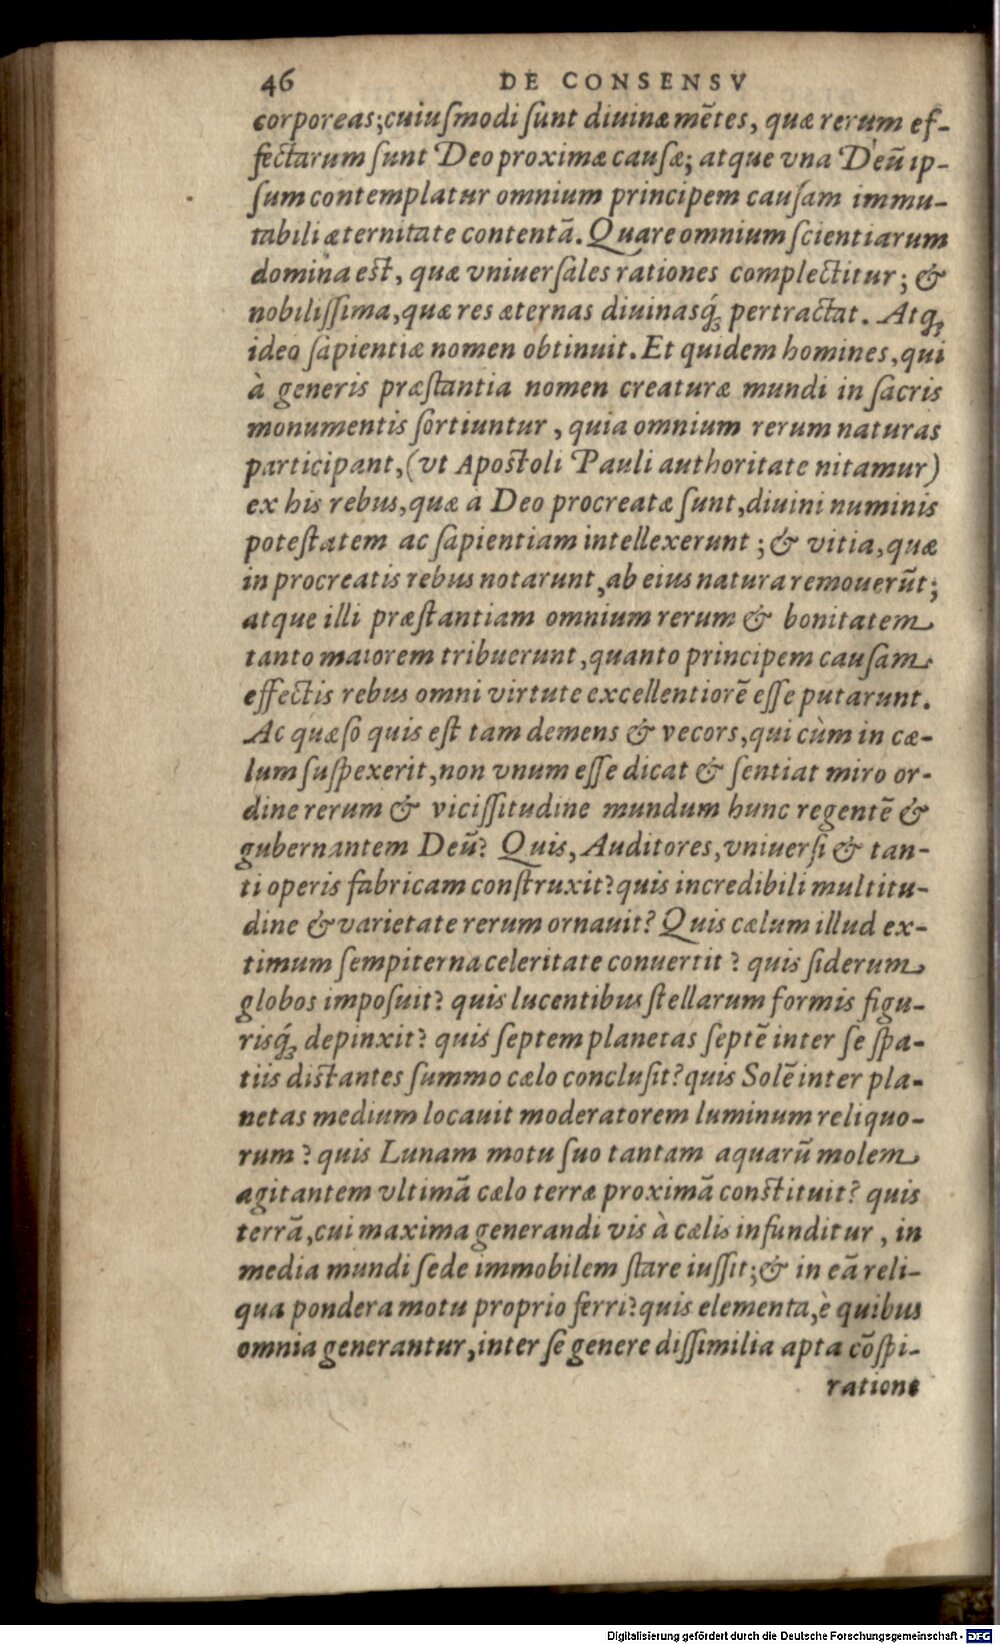 46 DE CONSENSV
corporeas; cuiuſmodi ſunt diuinæ mẽtes, quæ rerum ef-
fectarum ſunt Deo proximæ cauſæ; atque vna Deũ ip-
ſum contemplatur omnium principem cauſam immu-
tabili æternitate contentã. Quare omnium ſcientiarum
domina eſt, quæ vniuerſales rationes complectitur; &
nobiliſſima, quæ res æternas diuinasq́; pertractat. Atq;
ideo ſapientiæ nomen obtinuit. Et quidem homines, qui
à generis præſtantia nomen creaturæ mundi in ſacris
monumentis ſortiuntur, quia omnium rerum naturas
participant, (vt Apoſtoli Pauli authoritate nitamur)
ex his rebus, quæ a Deo procreatæ ſunt, diuini numinis
poteſtatem ac ſapientiam intellexerunt; & vitia, quæ
in procreatis rebus notarunt, ab eius natura remouerũt;
atque illi præſtantiam omnium rerum & bonitatem
tanto maiorem tribuerunt, quanto principem cauſam
effectis rebus omni virtute excellentiorẽ eſſe putarunt.
Ac quæſo quis eſt tam demens & vecors, qui cùm in cæ-
lum ſuſpexerit, non vnum eſſe dicat & ſentiat miro or-
dine rerum & viciſſitudine mundum hunc regentẽ &
gubernantem Deũ? Quis, Auditores, vniuerſi & tan-
ti operis fabricam conſtruxit? quis incredibili multitu-
dine & varietate rerum ornauit? Quis cælum illud ex-
timum ſempiterna celeritate conuertit? quis ſiderum
globos impoſuit? quis lucentibus ſtellarum formis figu-
risq́; depinxit? quis ſeptem planetas ſeptẽ inter ſe ſpa-
tiis diſtantes ſummo cælo concluſit? quis Solẽ inter pla-
netas medium locauit moderatorem luminum reliquo-
rum? quis Lunam motu ſuo tantam aquarũ molem
agitantem vltimã cælo terræ proximã conſtituit? quis
terrã, cui maxima generandi vis à cælis infunditur, in
media mundi ſede immobilem ſtare iuſſit; & in eã reli-
qua pondera motu proprio ferri? quis elementa, è quibus
omnia generantur, inter ſe genere diſſimilia apta cõſpi-
ratione
Digitalisierung gefördert durch die Deutsche Forschungsgemeinschaft - DFG